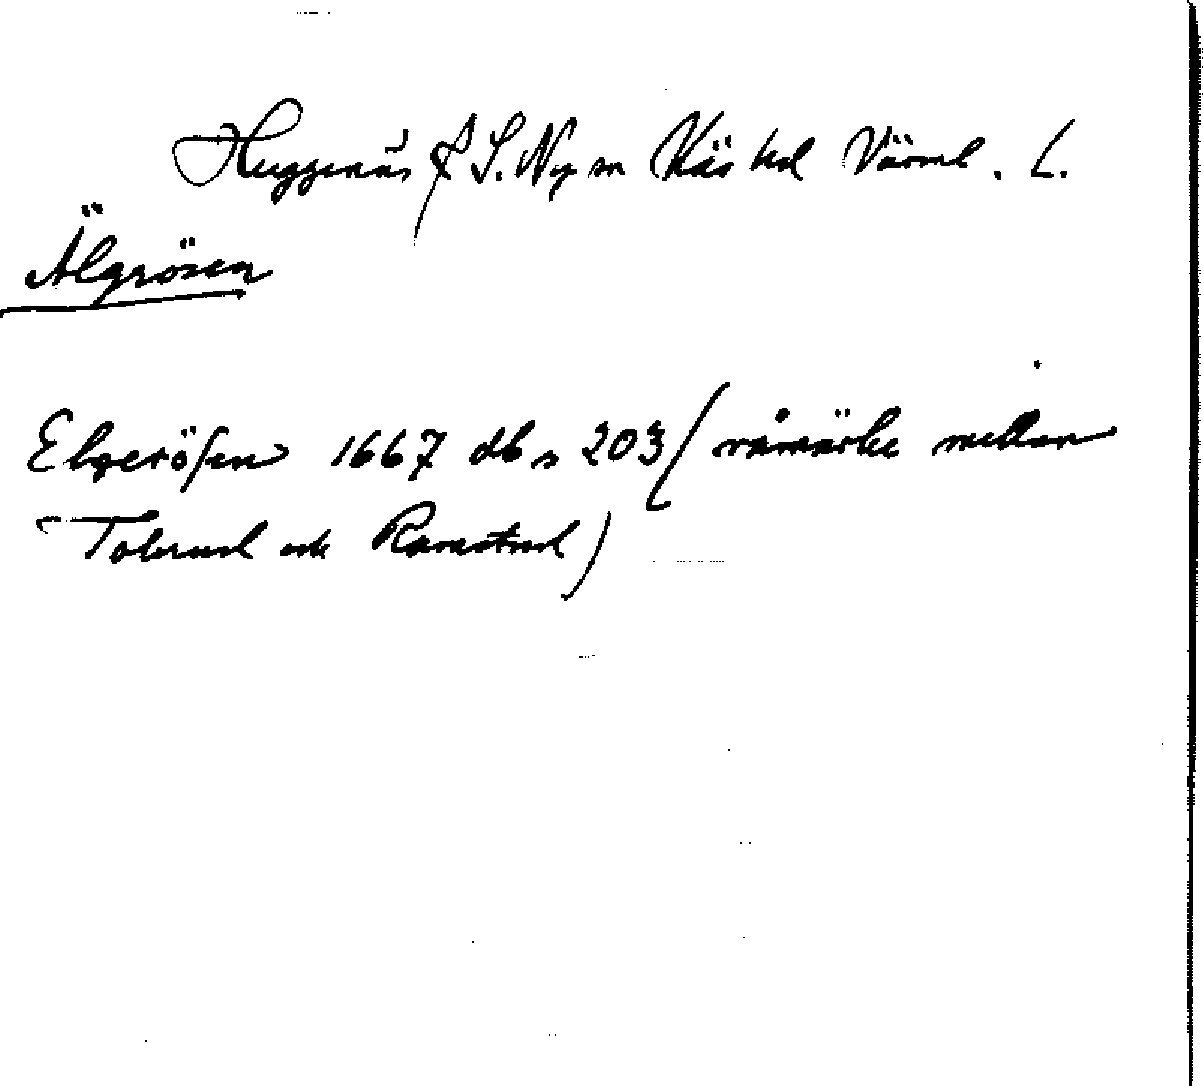 Huggenäs f S. Ny sn Näs hd Värml. L.
Älgrösen
Elgerösen 1667 db s 203 (råmärke mellan
Tolerud och Ramstad)